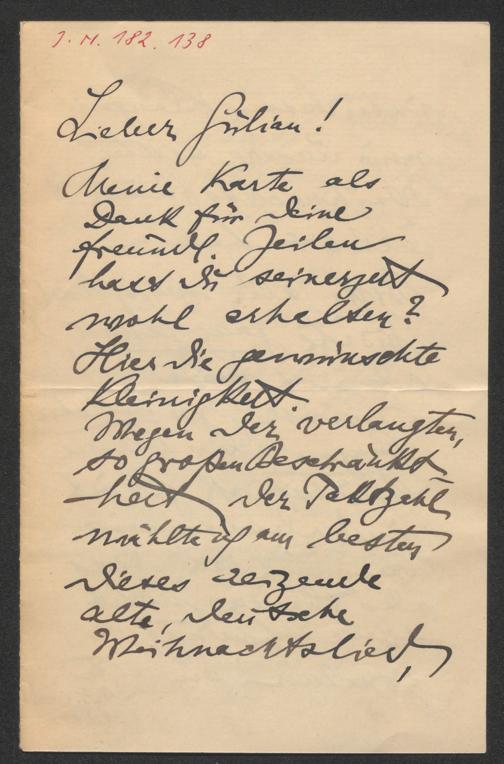 J. N. 182.138
Lieber Gülian!
Meine Karte als
Dank für deine
freundl. Zeilen
hast du seinerzeit
wohl erhalten?
Hier die gewünschte
Kleinigkeit.
Wegen der verlangten,
so großen Beschränkt
heit der Taktzahl
wählte ich am besten
dieses reizende
alte, deutsche
Weihnachtslied,